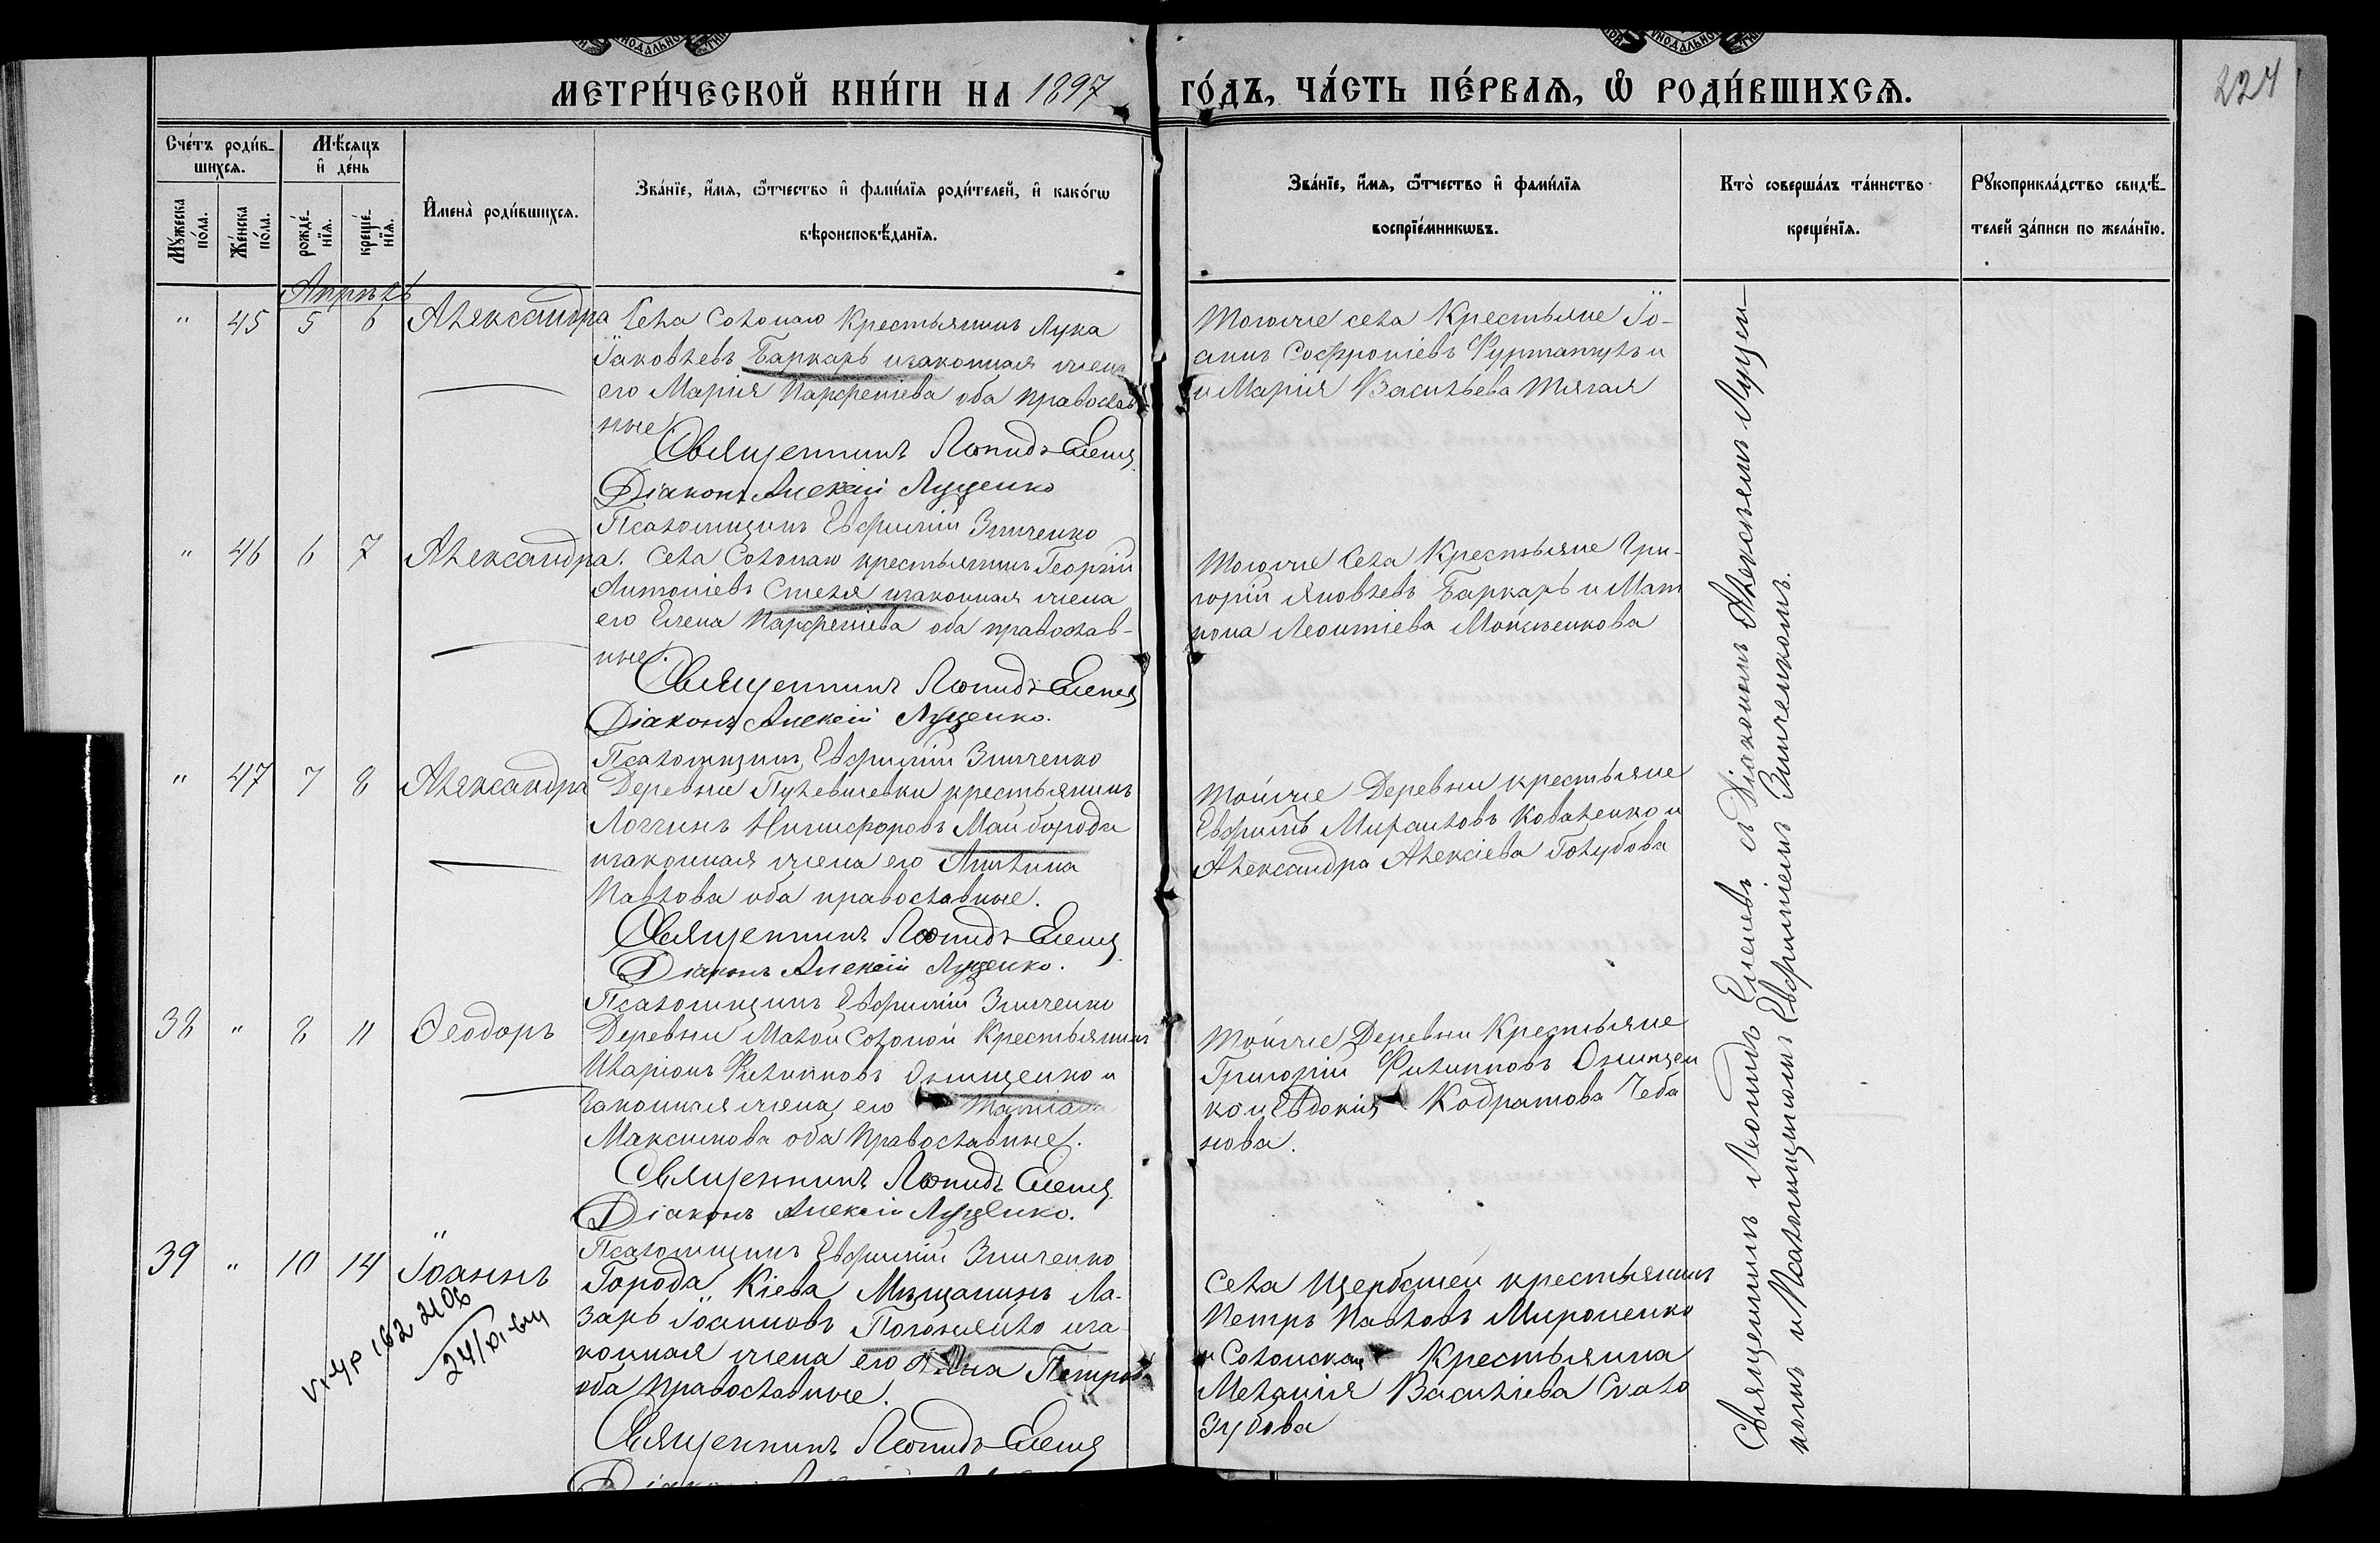 МЕТРИ́ЧЕСКОЙ КНИ́ГИ НА 1897 ГО́ДЪ, ЧА́СТЬ ПЕ́РВАѦ, Ѡ РОДИ́ВШИХСѦ.
224
Сче́тъ роди́в-
шихсѧ.
Мѣ́сяцъ
и де́нь
Мꙋ́жеска
по́ла.
Же́нска
по́ла.
рожде́-
нїѧ.
креще́-
нїѧ.
Имена̀ роди́вшихсѧ.
Зва́нїе, и́мѧ, ѻ́тчество и фами́лїѧ роди́телей, и како́гѡ
вѣроисповѣ́данїѧ.
Зва́нїе, и́мѧ, ѻ́тчество и фами́лїѧ
воспрїе́мникѡвъ.
Кто̀ соверша́лъ та́инство
креще́нїѧ.
Рꙋкоприкла́дство свидѣ́-
телей за́писи по жела́нїю.
Апрѣль
" 45 5 6 Александра
Села Солонаго Крестьянинъ Лука
Іаковлевъ Баркарь изаконная жена
его Марія Парфеніева оба православ
ные.
Священникъ Леонидъ Еленевъ
Діаконъ Алексій Луценко
Псаломщикъ Евфимій Зинченко
Тогоже села Крестьяне Іо-
аннъ Софроніевъ Фуртатулъ и
и Марія Васильева Тягая
" 46 6 7 Александра.
Села Солонаго крестьянинъ Георгій
Антоніевъ Стеля изаконная жена
его Елена Парфеніева оба православ-
ные.
Священникъ Леонидъ Еленевъ
Діаконъ Алексій Луценко.
Псаломщикъ Евфимій Зинченко
Тогоже Села Крестьяне Гри-
горій Яковлевъ Баркарь и Мат
рона Леонтіева Мойсеенкова
" 47 7 8 Александра
Деревни Пулевичевки крестьянинъ
Логгинъ Никифоровъ Майборода
изаконная жена его
Павлова оба православные.
Священникъ Леонидъ Еленевъ
Діаконъ Алексій Луценко.
Псаломщикъ Евфимій Зинченко
Тойже Деревни крестьяне
Евфимъ Михаиловъ Коваленко и
Александра Алексіева Голубова
38 " 8 11 Ѳеодоръ
Деревни Малой Солоной Крестьянинъ
Иларіонъ Филипповъ Онищенко и
законная жена его Татіана
Максимова оба Православные.
Священникъ Леонидъ Еленевъ
Діаконъ Алексій Луценко.
Псаломщикъ Евфимій Зинченко
Тойже Деревни Крестьяне
Григорій Филипповъ Онищен
ко и Евдокія Кодратова Чеба
нова.
39 " 10 14 Іоаннъ
Города Кіева Мѣщанинъ Ла-
зарь Іоанновъ Погоняйло иза
конная жена его Анна Петрова
оба Православные.
Священникъ Леонидъ Еленевъ
Села Щербаней крестьянинъ
Петръ Павловъ Мироненко
и Солонская Крестьянка
Меланія Василіева Скало
зубова
162 2106
Священникъ Леонидъ Еленевъ съ Діакономъ Алексѣемъ Луцен-
комъ и Псаломщикомъ Евфиміемъ Зинченкомъ.